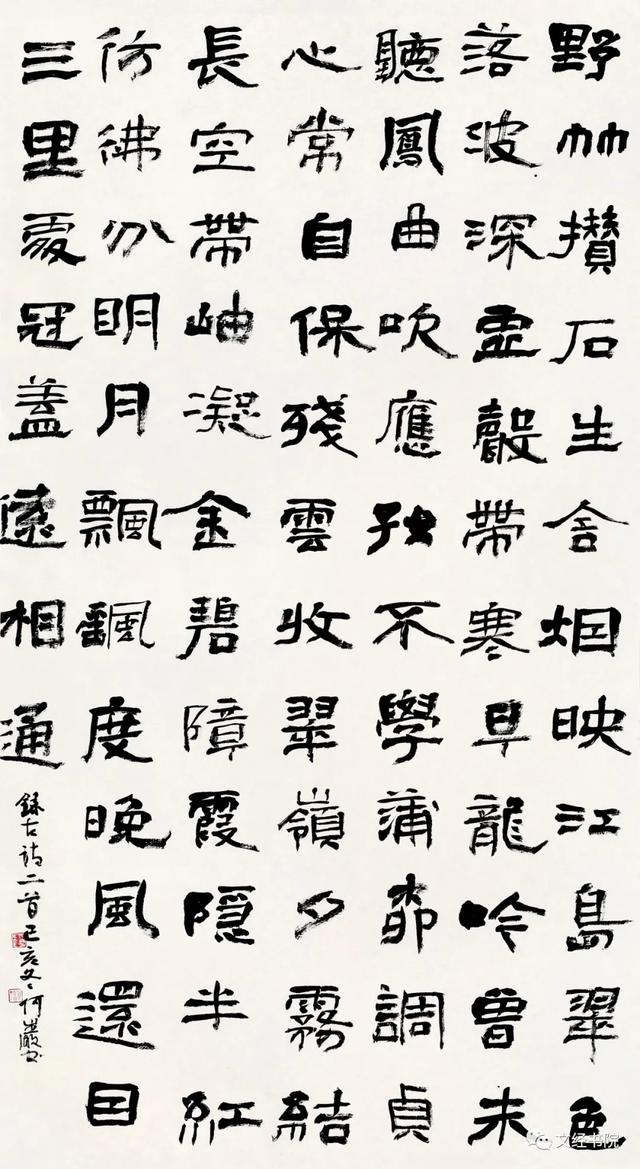 野竹攢石生含烟映江島翠色
落波深虛聲帶寒早龍吟曾未
聽鳳曲吹應好不學蒲柳調貞
心常自保殘雲收翠嶺夕霧結
長空帶岫凝金碧障霞隱半紅
仿彿分明月飄颻度晚風還因
三里處冠蓋遠相通
錄古詩二首己亥
文经书院